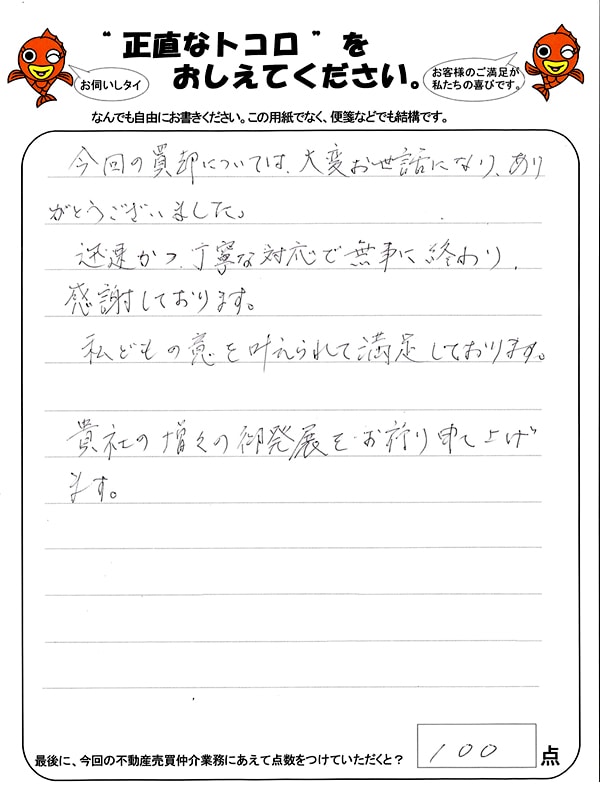 “正直なトコロ”を
おしえてください。
お伺いしタイ
お客様のご満足が
私たちの喜びです。
なんでも自由にお書きください。この用紙でなく、便箋などでも結構です。
今回の買却については、大変お世話になり、あり
がとうございました。
迅速かつ、丁寧な対応で無事に終わり、
感謝しております。
私どもの意を叶えられて満足しております。
貴社の増々の御発展をお祈り申し上げ
ます。
最後に、今回の不動産売買仲介業務にあえて点数をつけていただくと?
100
点